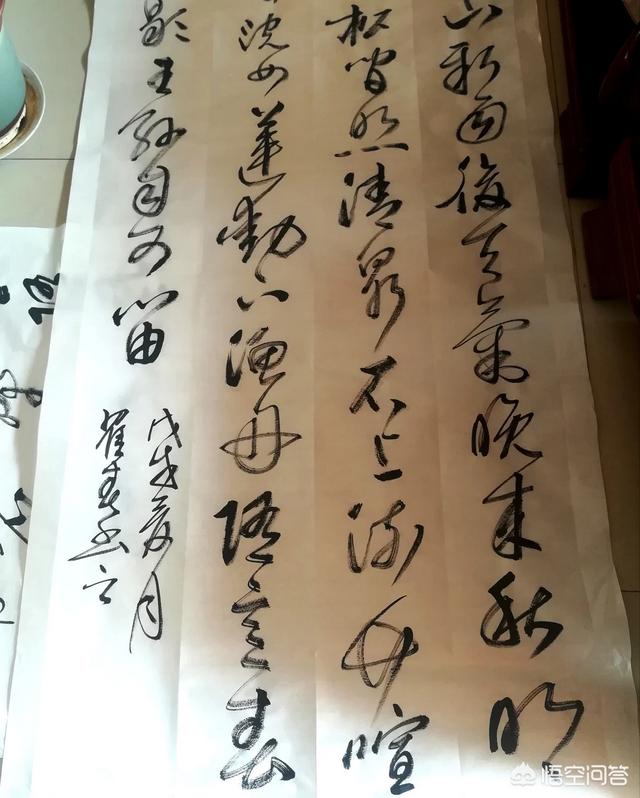 山新雨後天氣晚来秋明
松間照清泉石上流竹喧
浣女蓮動下漁舟随意春
歇王孫自可留
戊戌夏月
悟空问答